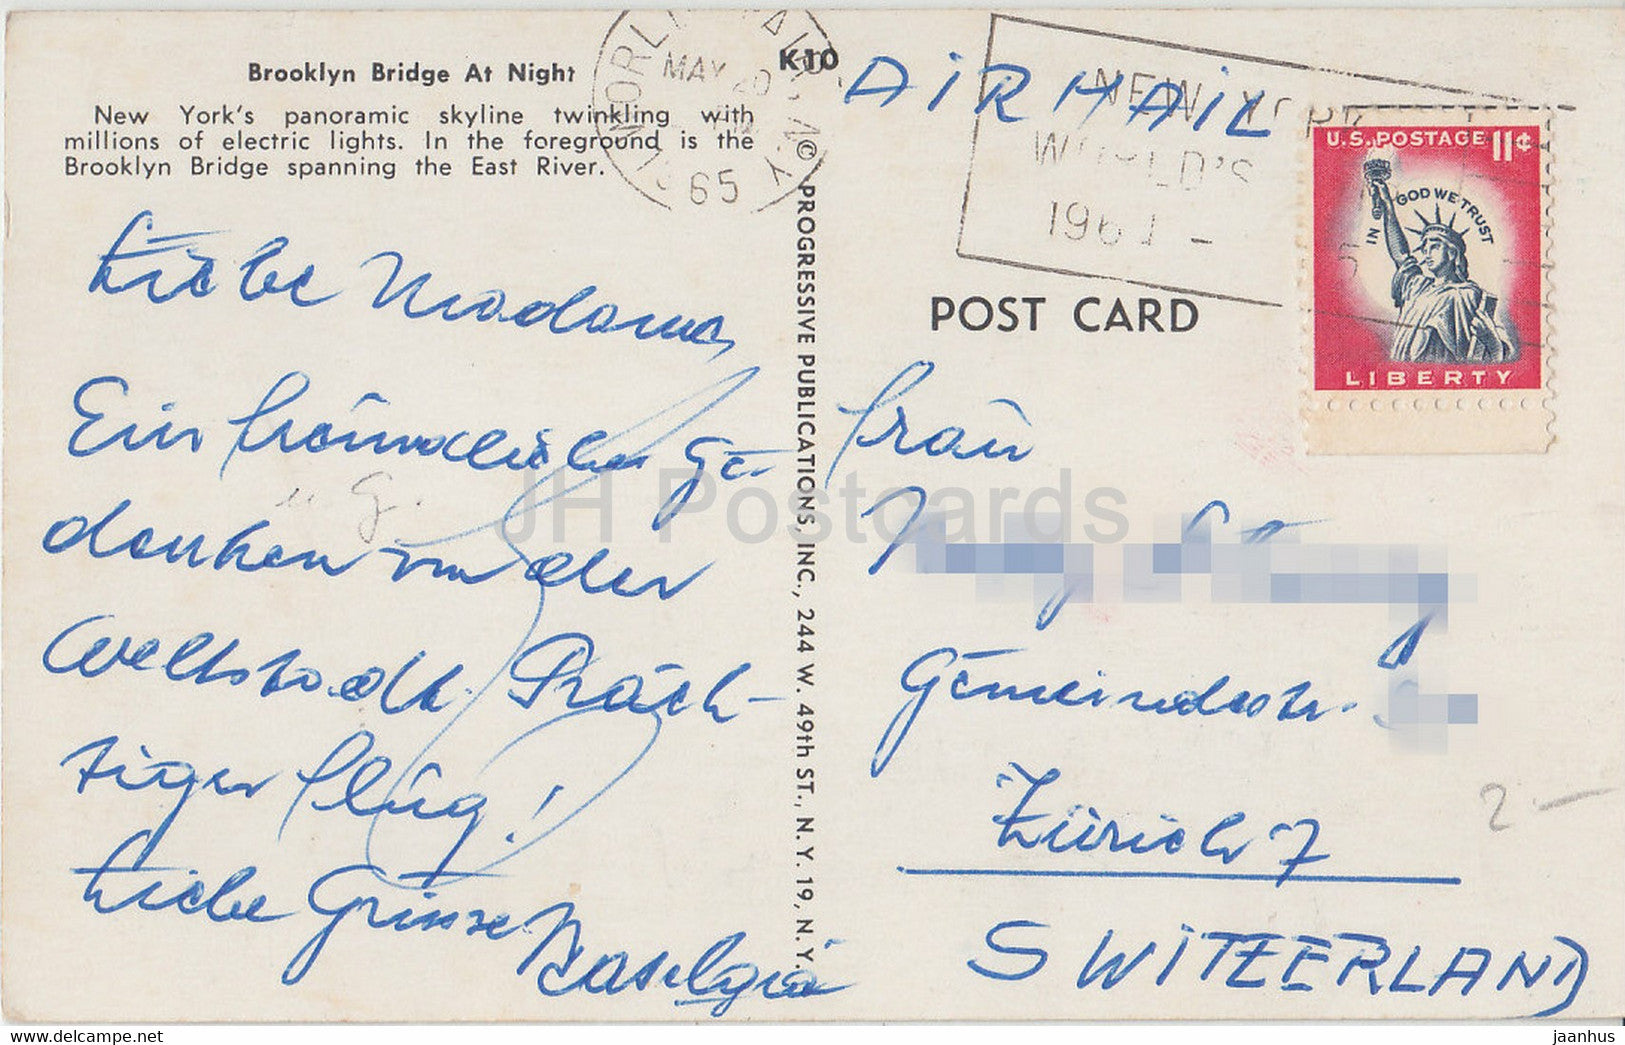 Brooklyn Bridge At Night
New York's panoramic skyline twinkling with
millions of electric lights. In the foreground is the
Brooklyn Bridge spanning the East River.
K10
WORLD'S FAIR, N.Y.
MAY
65
NEW YORK
WORLD'S
196
AIRMAIL
U.S. POSTAGE 11¢
IN GOD WE TRUST
LIBERTY
POST CARD
© PROGRESSIVE PUBLICATIONS, INC., 244 W. 49th ST., N. Y. 19, N. Y.
Liebe Madame,
Ein freundliches Ge-
denken von der
Weltstadt. Präch-
tiger Flug!
Liebe Grüsse
Frau
Gemeindestr.
Zürich 7
SWITZERLAND
2.-
JH Postcards
www.delcampe.net
jaanhus